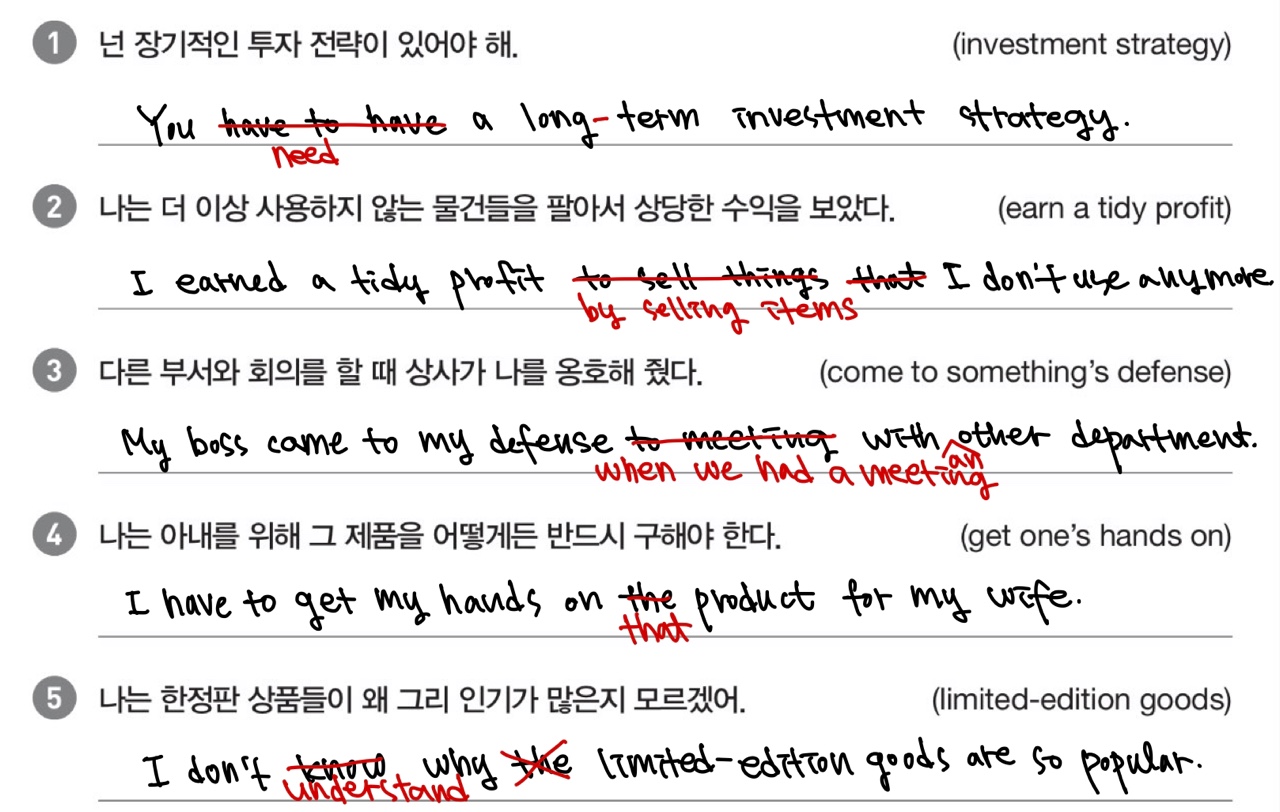 1 넌 장기적인 투자 전략이 있어야 해. (investment strategy)
You have to have a long-term investment strategy.
need
2 나는 더 이상 사용하지 않는 물건들을 팔아서 상당한 수익을 보았다. (earn a tidy profit)
I earned a tidy profit to sell things that I don't use anymore.
by selling items
3 다른 부서와 회의를 할 때 상사가 나를 옹호해 줬다. (come to something's defense)
My boss came to my defense to meeting with other department.
when we had a meeting an
4 나는 아내를 위해 그 제품을 어떻게든 반드시 구해야 한다. (get one's hands on)
I have to get my hands on the product for my wife.
that
5 나는 한정판 상품들이 왜 그리 인기가 많은지 모르겠어. (limited-edition goods)
I don't know why the limited-edition goods are so popular.
understand